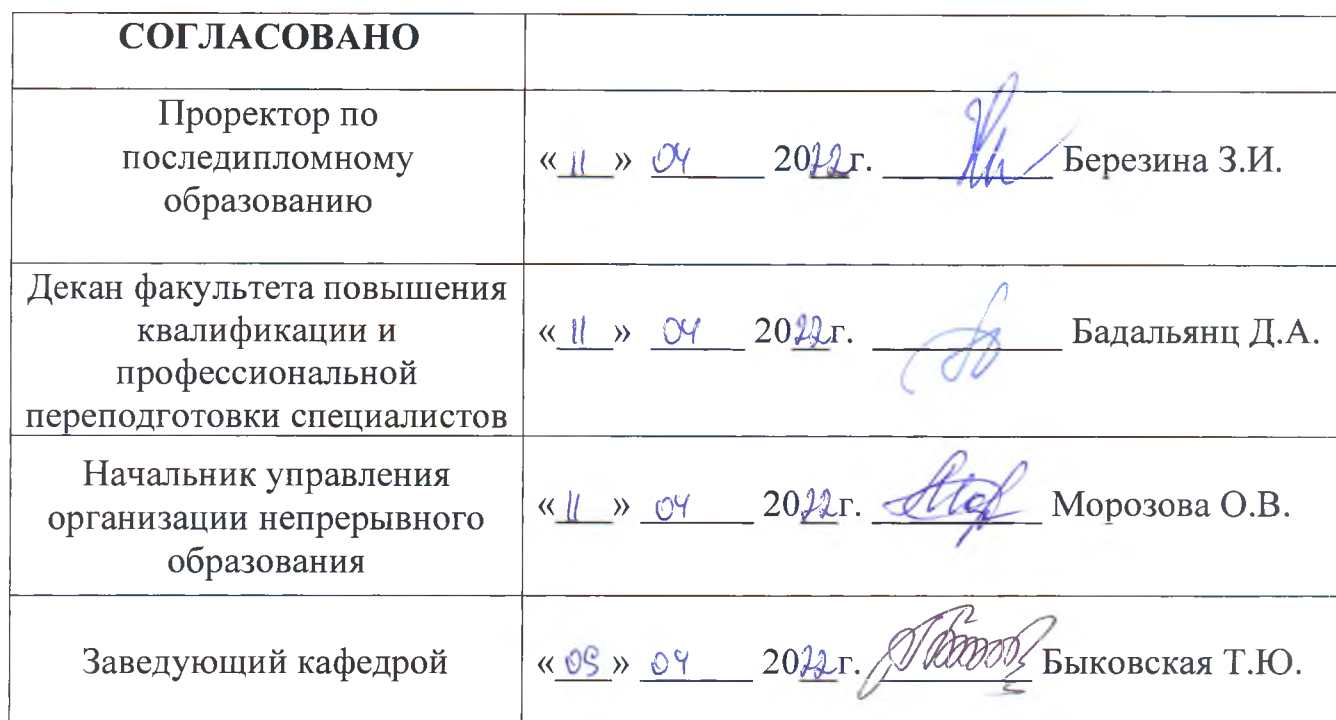 СОГЛАСОВАНО
Проректор по
последипломному
образованию
« 11 » 04 2022г. Березина З.И.
Декан факультета повышения
квалификации и
профессиональной
переподготовки специалистов
« 11 » 04 2022г. Бадальянц Д.А.
Начальник управления
организации непрерывного
образования
« 11 » 04 2022г. Морозова О.В.
Заведующий кафедрой
« » 04 2022г. Быковская Т.Ю.